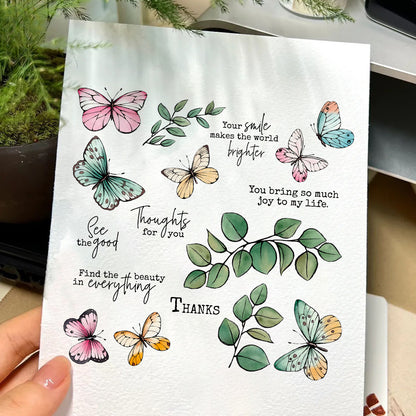 Your smile
makes the world
brighter
You bring so much
joy to my life.
See
the good
Thoughts
for you
Find the beauty
in everything
THANKS